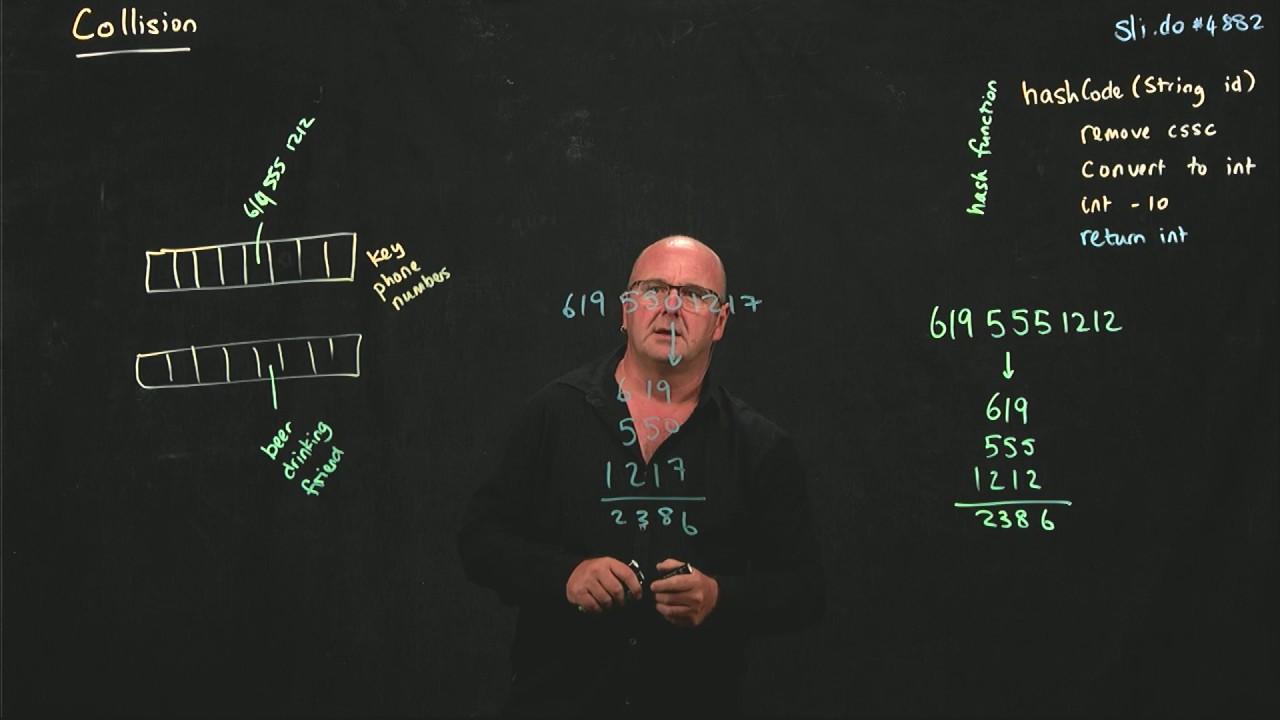 Collision
sli.do #4882
hash function
hashCode (String id)
remove cssc
Convert to int
int - 10
return int
619 555 1212
key
phone
numbers
beer
drinking
friend
619 550 1217
↓
619
550
1217
2386
619 555 1212
↓
619
555
1212
2386